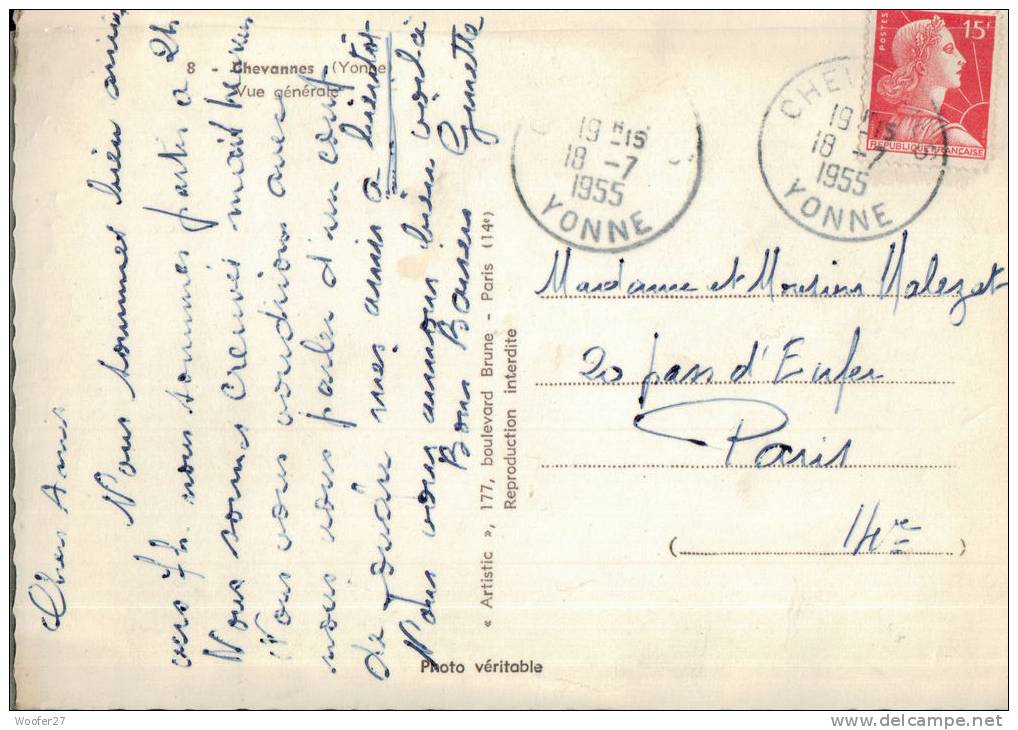 8 - Chevannes (Yonne)
Vue générale
Chers Amis
Nous sommes bien arrivés
vers 7h. nous sommes partis a 2h
Nous somme crevés mais heureux
Nous vous voudrions avec
nous vous parler d'un conf
de mes amis a bientôt
Nous vous aimons bien voilà
Bons Baisers Ginette
« Artistic », 177, boulevard Brune - Paris (14e)
Reproduction interdite
Photo véritable
19 H 15
18 -7
1955
YONNE
CHEV
19 H 15
18 -7
1955
YONNE
POSTES
15F
REPUBLIQUE FRANCAISE
Madame et Monsieur Malezat
20 pass d'Enfer
Paris
14e
Woofer27
delcampe.net